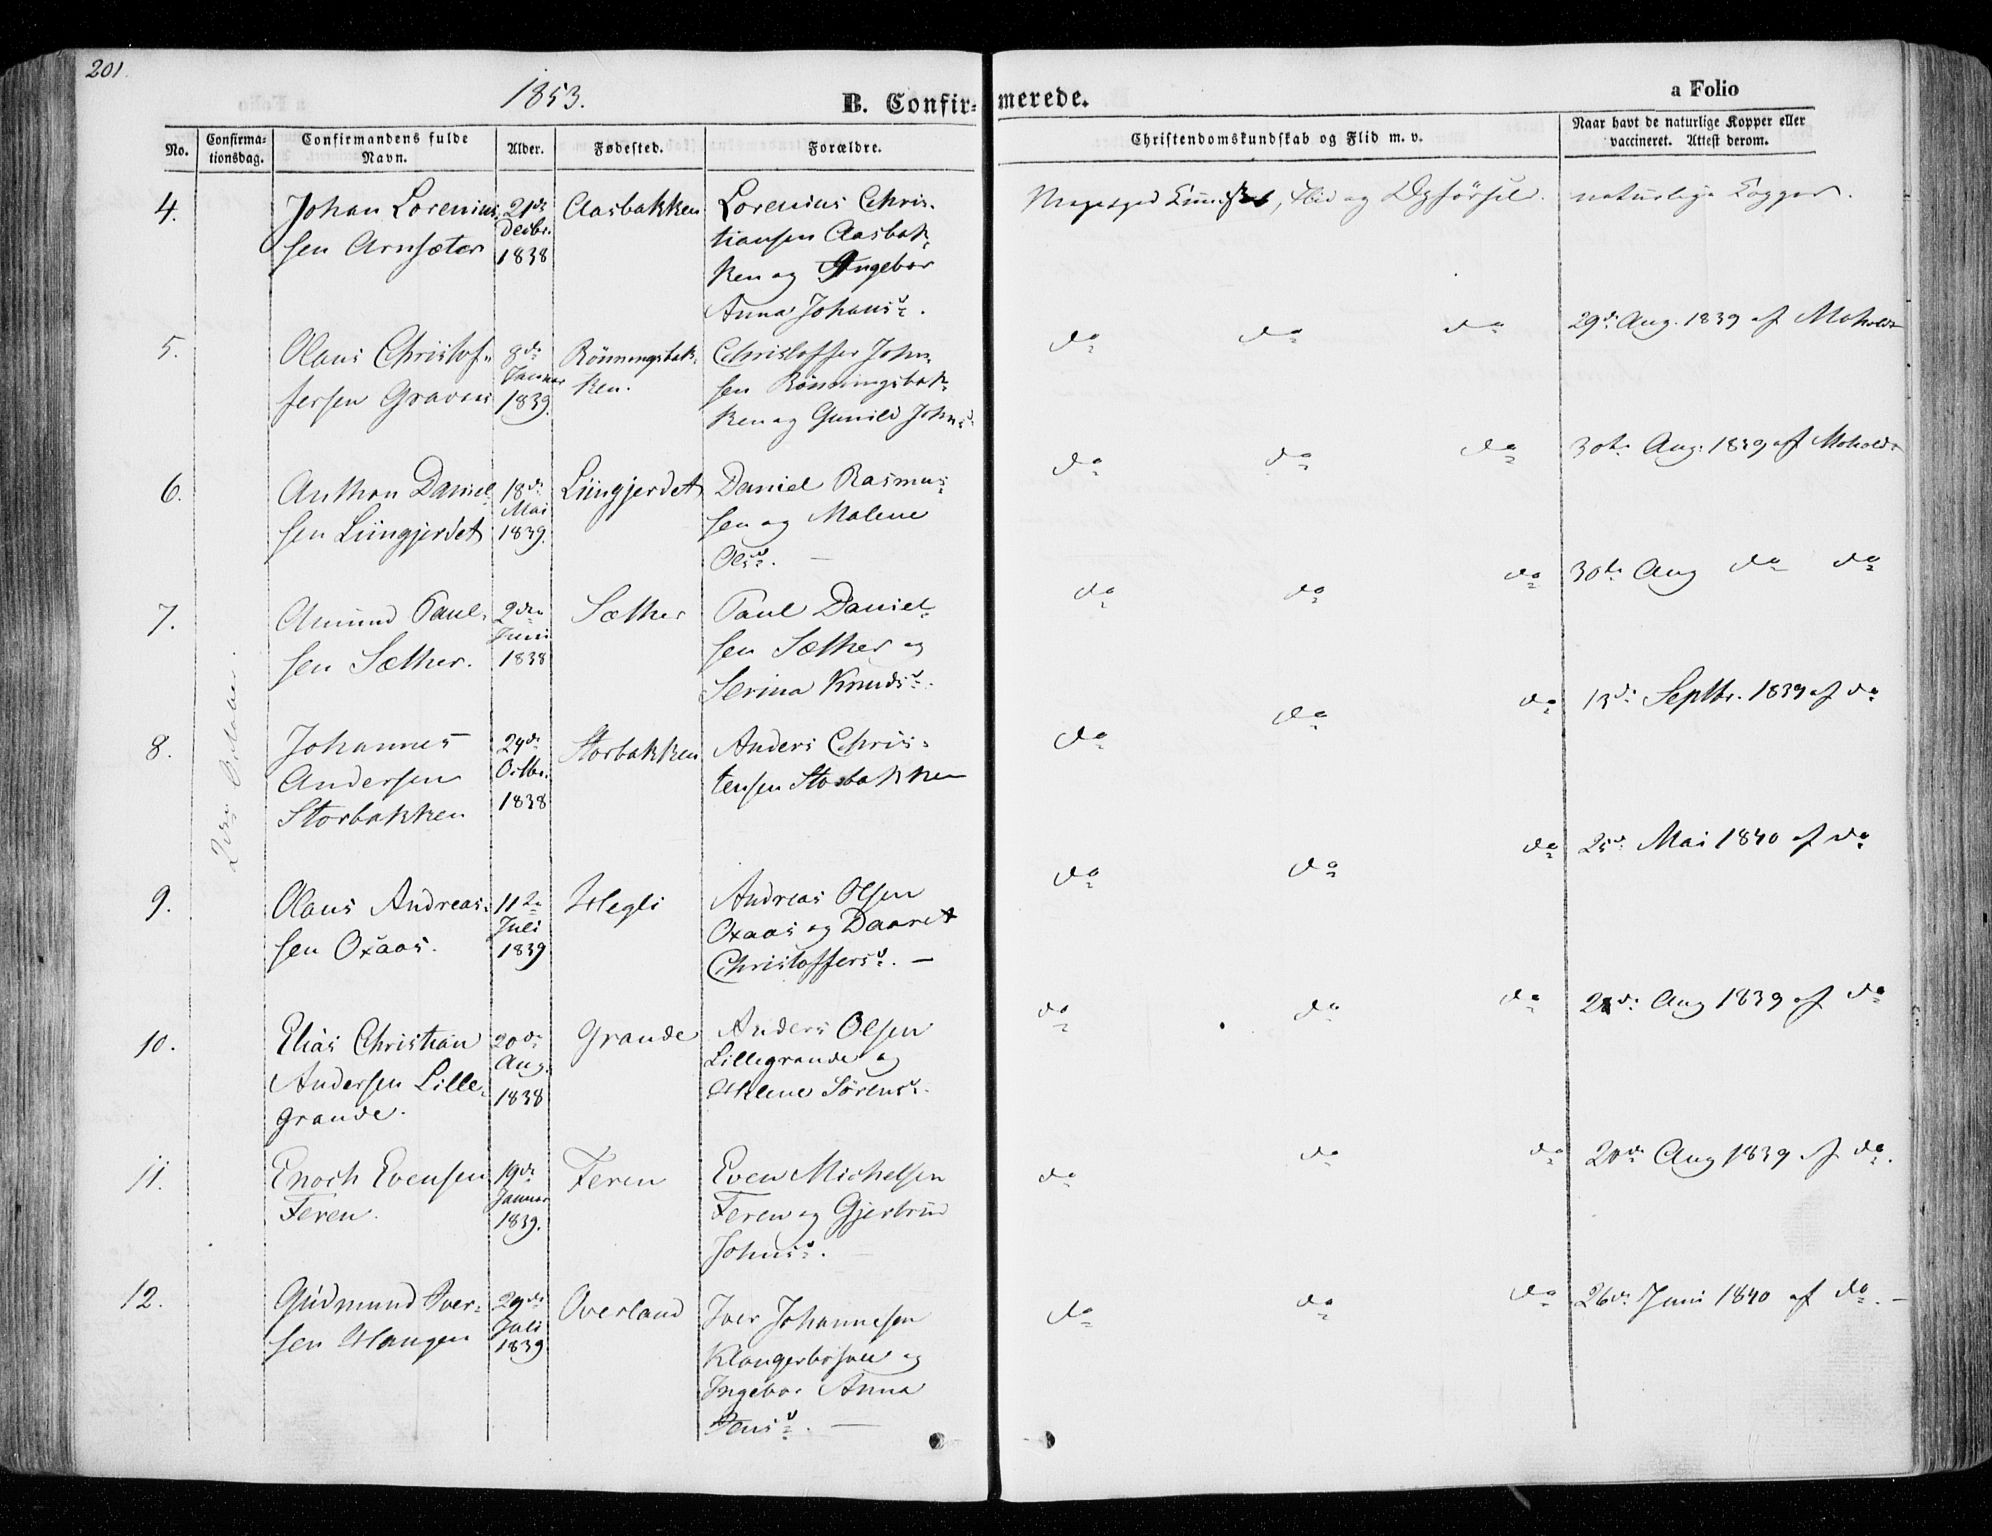 201.
1853.
B. Confirmerede.
a Folio
No.
Confirma-
tionsdag.
Confirmandens fulde
Navn.
Alder.
Fødested.
Forældre.
Christendomskundskab og Flid m. v.
Naar havt de naturlige Kopper eller
vaccineret. Attest derom.
4.
Johan Lorenius
sen Arnsæter
21de
Decbr.
1838
Aasbakken
Lorenius Chris-
tiansen Aasbak-
ken og Ingebor
Anna Johansd.
Megetgod Kundskab, Flid og Opførsel.
naturlige Kopper.
5.
Olaus Christof-
fersen Gravaas
8de
Januar
1839.
Rönningsbak-
ken.
Christoffer John-
sen Rönningsbak-
ken og Gunild Johnsd
do do do
29de Aug. 1839 af Moholdt
6.
Anthon Daniel-
sen Lüngjerdet
18de
Mai
1839.
Lüngjerdet
Daniel Rasmus-
sen og Malene
Olsd. —
do do do
30te Aug. 1839 af Moholdt
7.
Amund Paul-
sen Sæther.
2den
Juni
1838
Sæther
Paul Daniel-
sen Sæther og
Serina Knudsd.
do do do
30te Aug do do
8.
Johannes
Andersen
Storbakken
24de
Octbr.
1838
Storbakken
Anders Chris-
tensen Storbakken
do do do
13de Septbr. 1839 af do
2den October.
9.
Olaus Andreas-
sen Oxaas.
11te
Juli
1839
Hegli
Andreas Olsen
Oxaas og Daaret
Christoffersd. —
do do do
25de Mai 1840 af do
10.
Elias Christian
Andersen Lille-
grande.
20de
Aug.
1838
Grande
Anders Olsen
Lillegrande og
Helene Sørensd.
do do do
de Aug 1839 af do
11.
Enoch Evensen
Feren.
19de
Januar
1839.
Feren
Even Michelsen
Feren og Gjertrud
Johnsd. —
do do do
de Aug 1839 af do.
12.
Gudmund Iver-
sen Haugen
29de
Juli
1839
Overland
Iver Johannesen
og
Ingebor Anna
Jensd. —
do do do
26de Juni 1840 af do. —